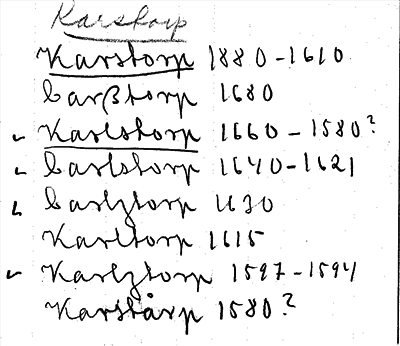 Karstorp
Karstorp 1880-1610
Carßtorp 1680
Karlstorp 1660-1580?
Carlstorp 1640-1621
Carlztorp 1630
Karltorp 1615
Karlztorp 1597-1594
Karstårp 1580?